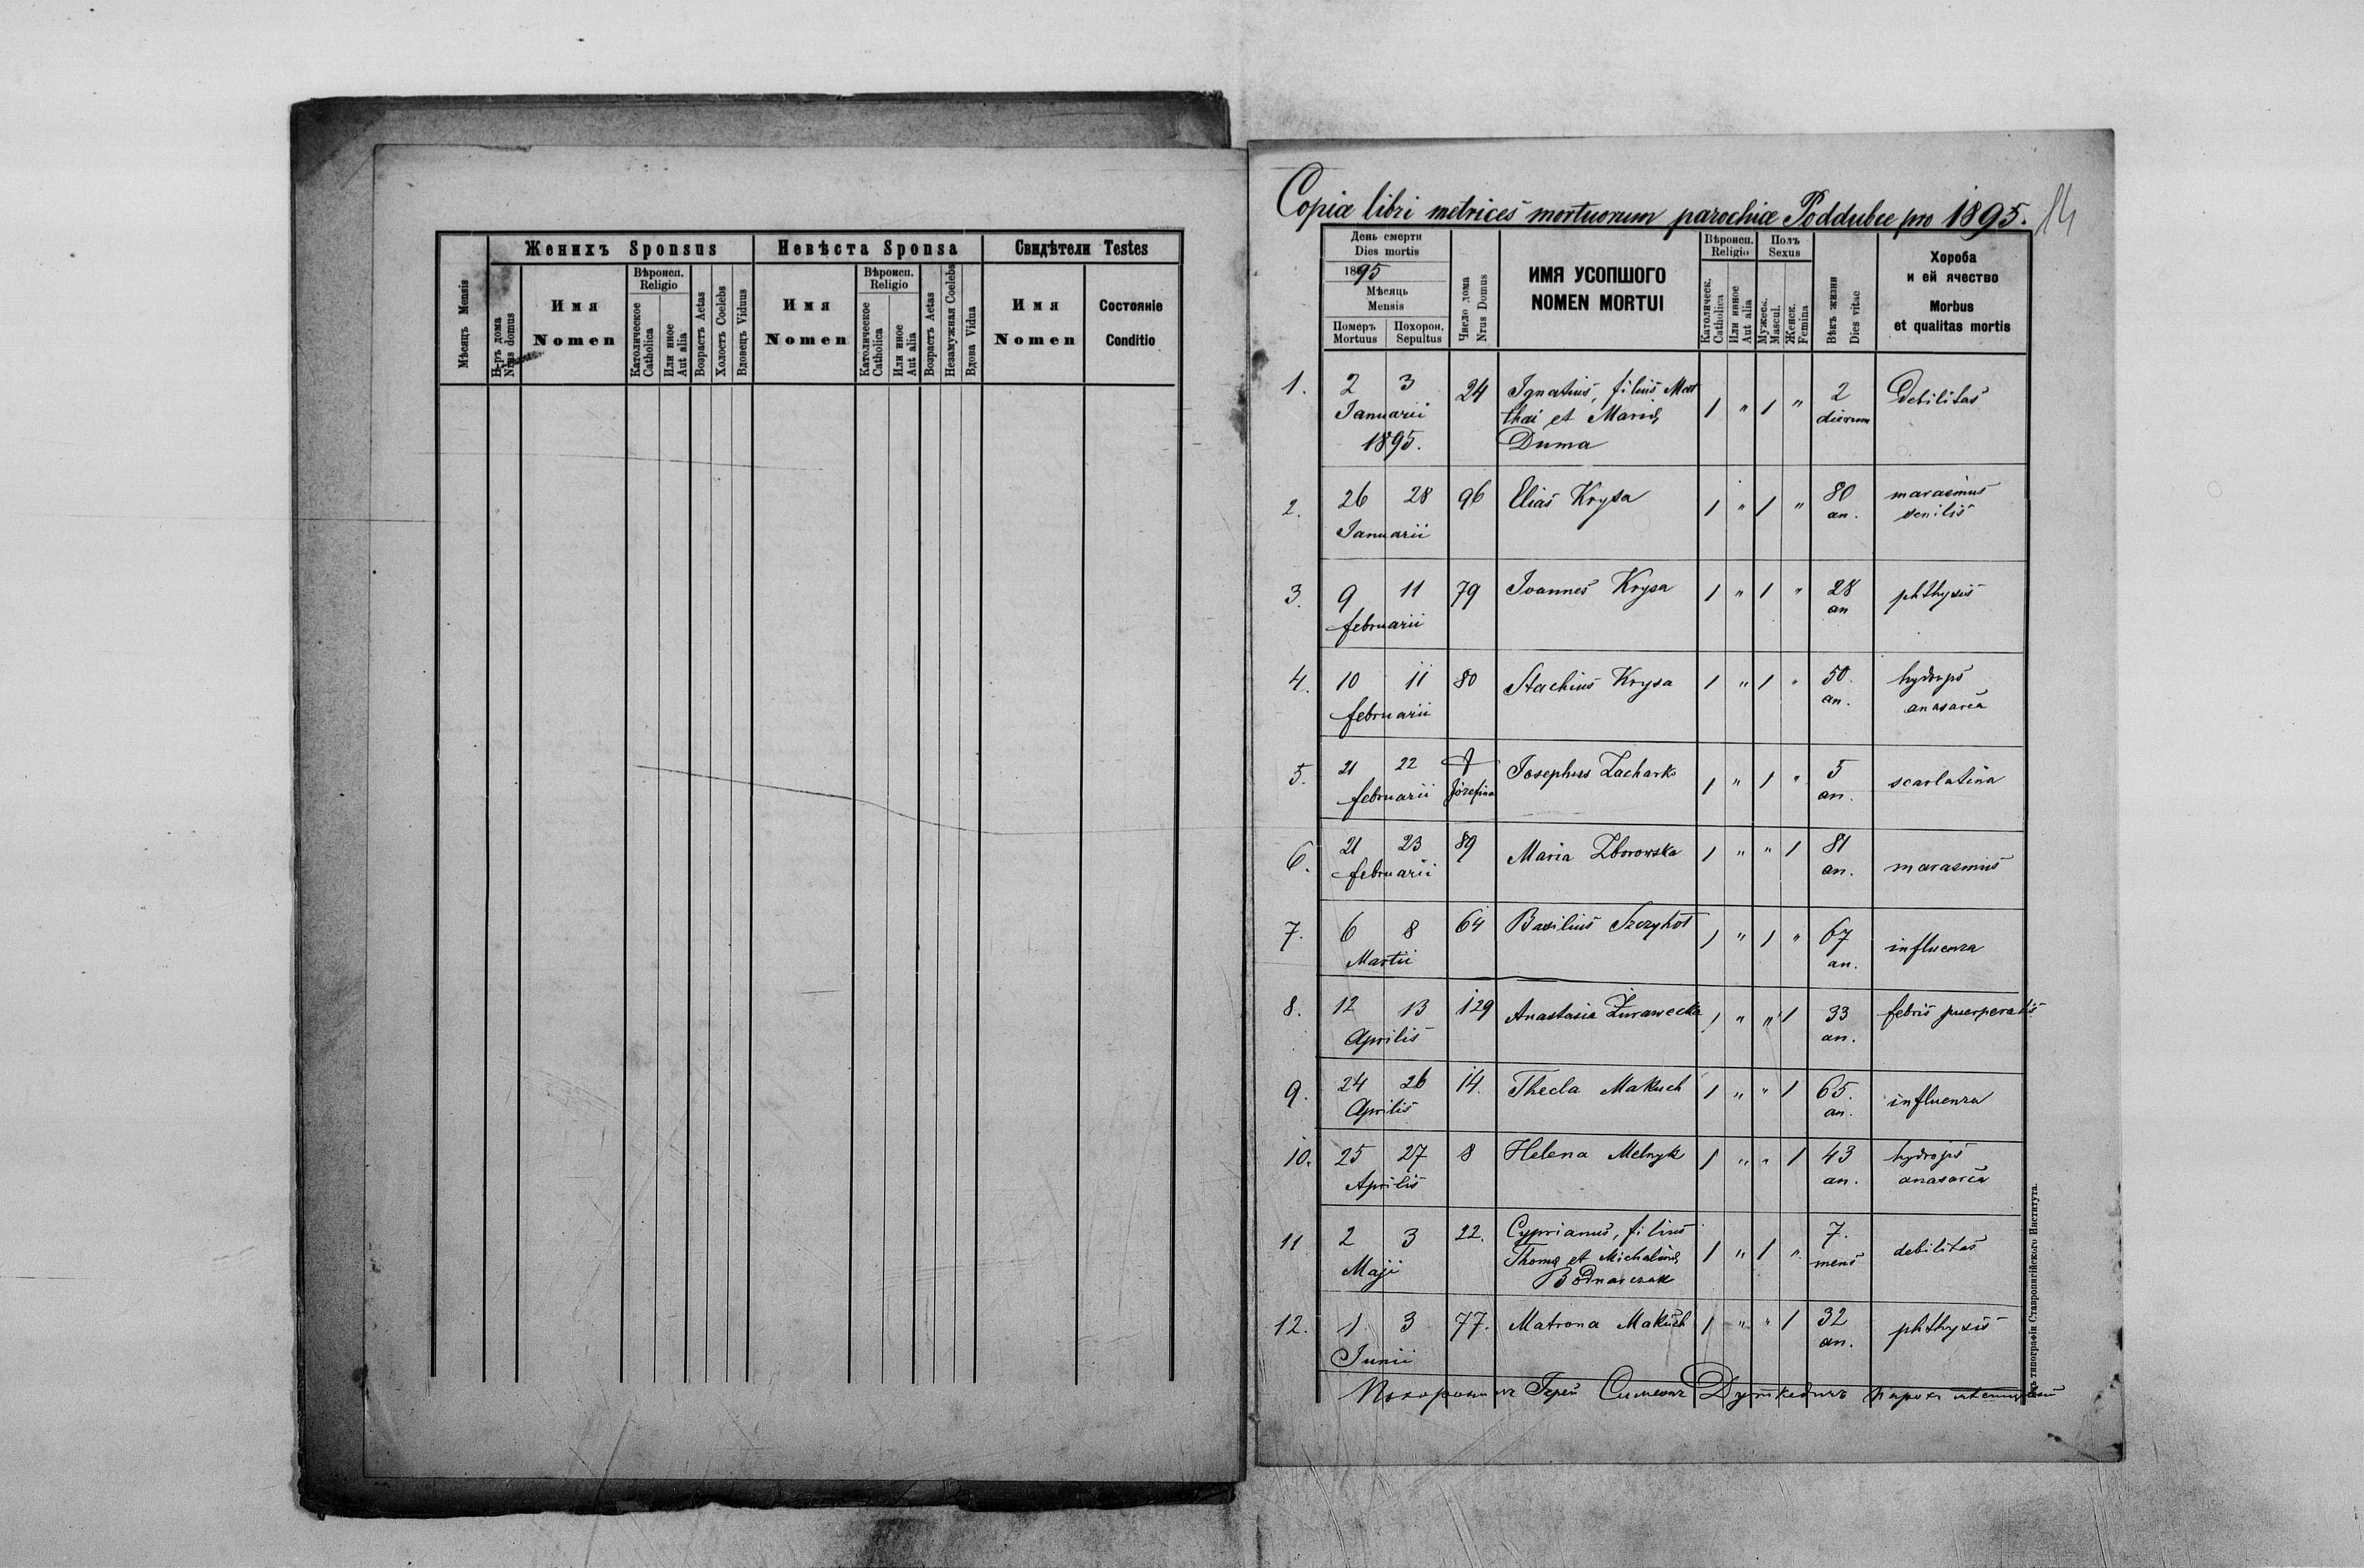 Женихъ Sponsus
Невѣста Sponsa
Свидѣтели Testes
Мѣсяцъ Mensis
Н-ръ дома
Nrus domus
Имя
Nomen
Вѣроисп.
Religio
Католическое
Catholica
Или иное
Aut alia
Возрастъ Aetas
Холостъ Coelebs
Вдовецъ Viduus
Имя
Nomen
Вѣроисп.
Religio
Католическое
Catholica
Или иное
Aut alia
Возрастъ Aetas
Незамужная Coelebs
Вдова Vidua
Имя
Nomen
Состояніе
Conditio
Copia libri metrices mortuorum parochiæ Poddubce pro 1895.
14
День смерти
Dies mortis
1895
Мѣсяць
Mensis
Померъ
Mortuus
Похорон.
Sepultus
Число дома
Nrus Domus
ИМЯ УСОПШОГО
NOMEN MORTUI
Вѣроисп.
Religio
Католическ.
Catholica
Или инное
Aut alia
Полъ
Sexus
Мужеск.
Mascul.
Женск.
Femina
Вѣкъ жизни
Dies vitae
Хороба
и ей ячество
Morbus
et qualitas mortis
1. 2 3 24 Ignatius, filius Mat 1 " 1 " 2 Debilitas
Januarii thai et Mariæ dierum
1895. Duma
2. 26 28 96 Elias Krysa 1 " 1 " 80 marasmus
Januarii an. senilis
3. 9 11 79 Joannes Krysa 1 " 1 " 28 phthysis
februarii an
4. 10 11 80 Stachius Krysa 1 " 1 " 50. hydrops
februarii an. anasarca
5. 21 22 Josephus Zacharko 1 " 1 " 5 scarlatina
februarii Józefina an.
6. 21 23 89 Maria Zborowska 1 " " 1 81 marasmus
februarii an.
7. 6 8 64 Basilius Szczyhoł 1 " 1 " 67 influenza
Martii an.
8. 12 13 129 Anastasia Żurawecka 1 " " 1 33 febris puerperalis
Aprilis an.
9. 24 26 14. Thecla Makuch 1 " " 1 65. influenza
Aprilis an.
10. 25 27 8 Helena Melnyk 1 " " 1 43 hydrops
Aprilis an. anasarca
11 2 3 22. Cyprianus, filius 1 " 1 " 7. debilitas
Maji Thomæ et Michalinæ mens
Bodnarczuk
12. 1 3 77. Matrona Makuch 1 " " 1 32 phthysis
Junii an.
Похоронилъ Іерей Симеонъ Дуткевичъ парохъ мѣстцевый
Изъ типографіи Ставропигійского Института.